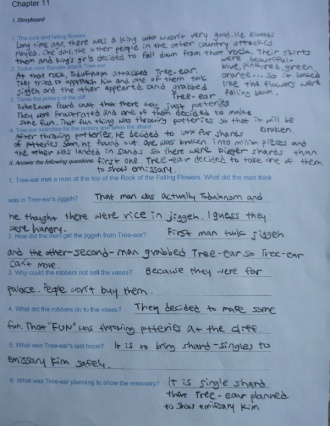 Chapter 11
I. Storyboard
1. The rock and falling flowers
Long time ago, there was a king who wasn't very good. He always
played. One day, the other people in the other country attacked
them and king's girls decided to fall down from that rock. Their skirts
were beautiful-
blue, pink, red, green
orange... So it looked
like that flowers were
falling down.
2. Tree-ear
At that rock, Tree-ear.
They tried to approach him and one of them took
jiggeh and the other appeared and grabbed
Tree-ear
3. Throw the pottery of the cliff
found out that there was just potteries
They were frustrated and one of them decided to make
some fun. That fun thing was throwing potteries so that it will be
broken.
4. Tree-ear searches for the pottery and the shard
After throwing potteries, he decided to look for shards
of potteries. Soon, he found out one was broken into million pieces and
the other was landed in sands. So there were bigger shards than
first one. Tree-ear decided to take one of them
to show emissary.
II. Answer the following questions.
1. Tree-ear met a man at the top of the Rock of the Falling Flowers. What did the man think
was in Tree-ear's jiggeh? That man was actually and
he thought there were rice in jiggeh. I guess they
were hungry.
2. How did the man get the jiggeh from Tree-ear? First man took jiggeh
and the other-second-man grabbed Tree-ear so Tree-ear
can't move.
3. Why could the robbers not sell the vases? Because they were for
palace. People won't buy them.
4. What did the robbers do to the vases? They decided to make some
fun. That "FUN" was throwing potteries at the cliff
5. What was Tree-ear's last hope? It is to bring shard-singles to
emissary Kim safely.
6. What was Tree-ear planning to show the emissary? It is single shard
that Tree-ear planned
to show emissary Kim